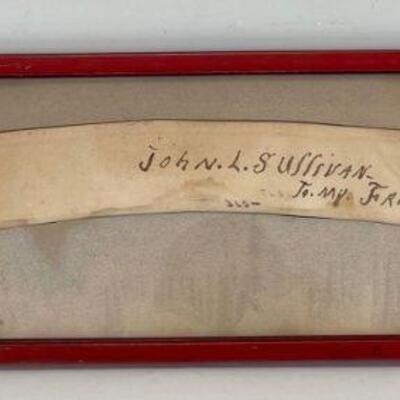 JOHN. L. SULLIVAN-
To. My. FR